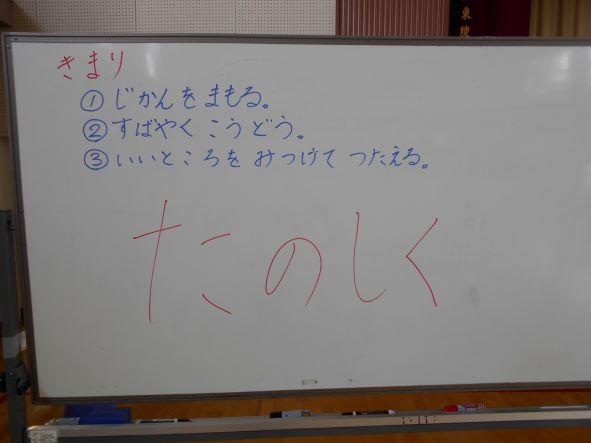 東陵
きまり
①じかんをまもる。
②すばやく こうどう。
③いいところを みつけて つたえる。
たのしく